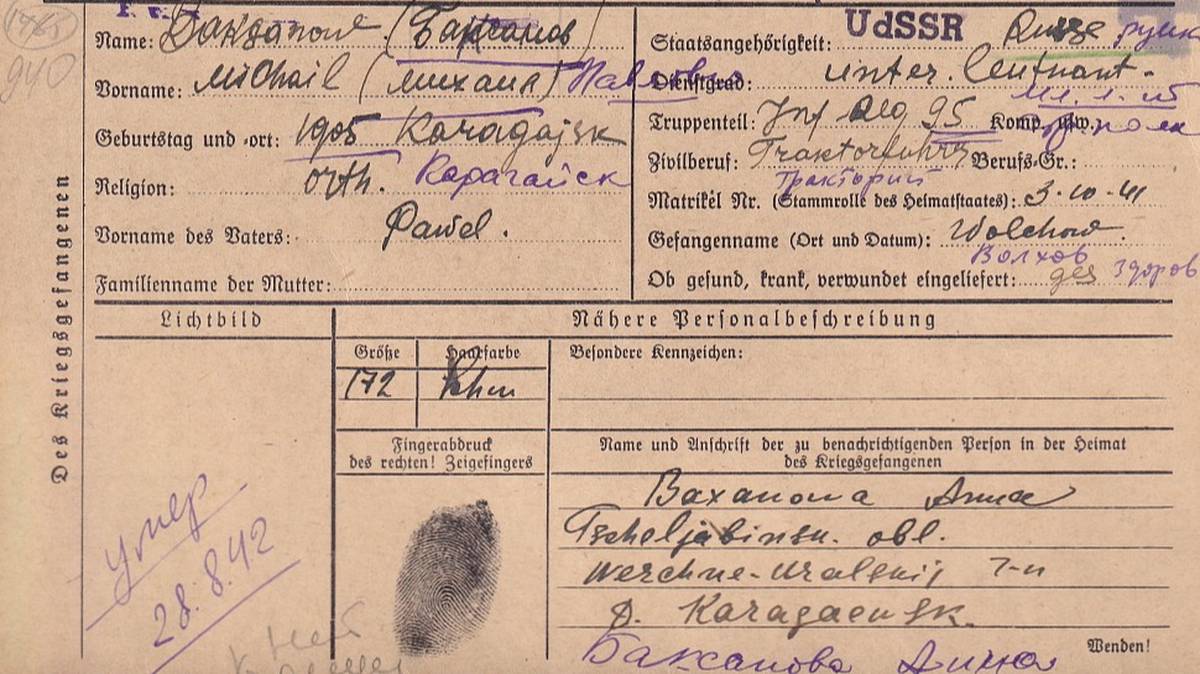 1465
940
Name: Baksanow (Баксанов)
Vorname: Michail (михаил) Павлович
Geburtstag und -ort: 1905 Karagajsk
Religion: orth. Карагайск
Vorname des Vaters: Pawel.
Familienname der Mutter:
UdSSR
Staatsangehörigkeit: Russe русск
Dienstgrad: unter. leutnant.
мл. л-т
Truppenteil: Inf Reg 95 Komp. usw.: полк
Zivilberuf: Traktorführer Berufs-Gr.:
Тракторист
Matrikel Nr. (Stammrolle des Heimatstaates): 3-10-41
Gefangenname (Ort und Datum): Wolchow.
Волхов
Ob gesund, krank, verwundet eingeliefert: ges здоров
Des Kriegsgefangenen
Lichtbild
умер
28.8.42
Нет
Nähere Personalbeschreibung
Größe Haarfarbe
172
Besondere Kennzeichen:
Fingerabdruck
des rechten! Zeigefingers
Name und Anschrift der zu benachrichtigenden Person in der Heimat
des Kriegsgefangenen
Baxanowa Anna
Tscheljabinsk. obl.
Werchne-Uralskij r-n
D. Karagaewsk.
Wenden!
Баксанова Анна